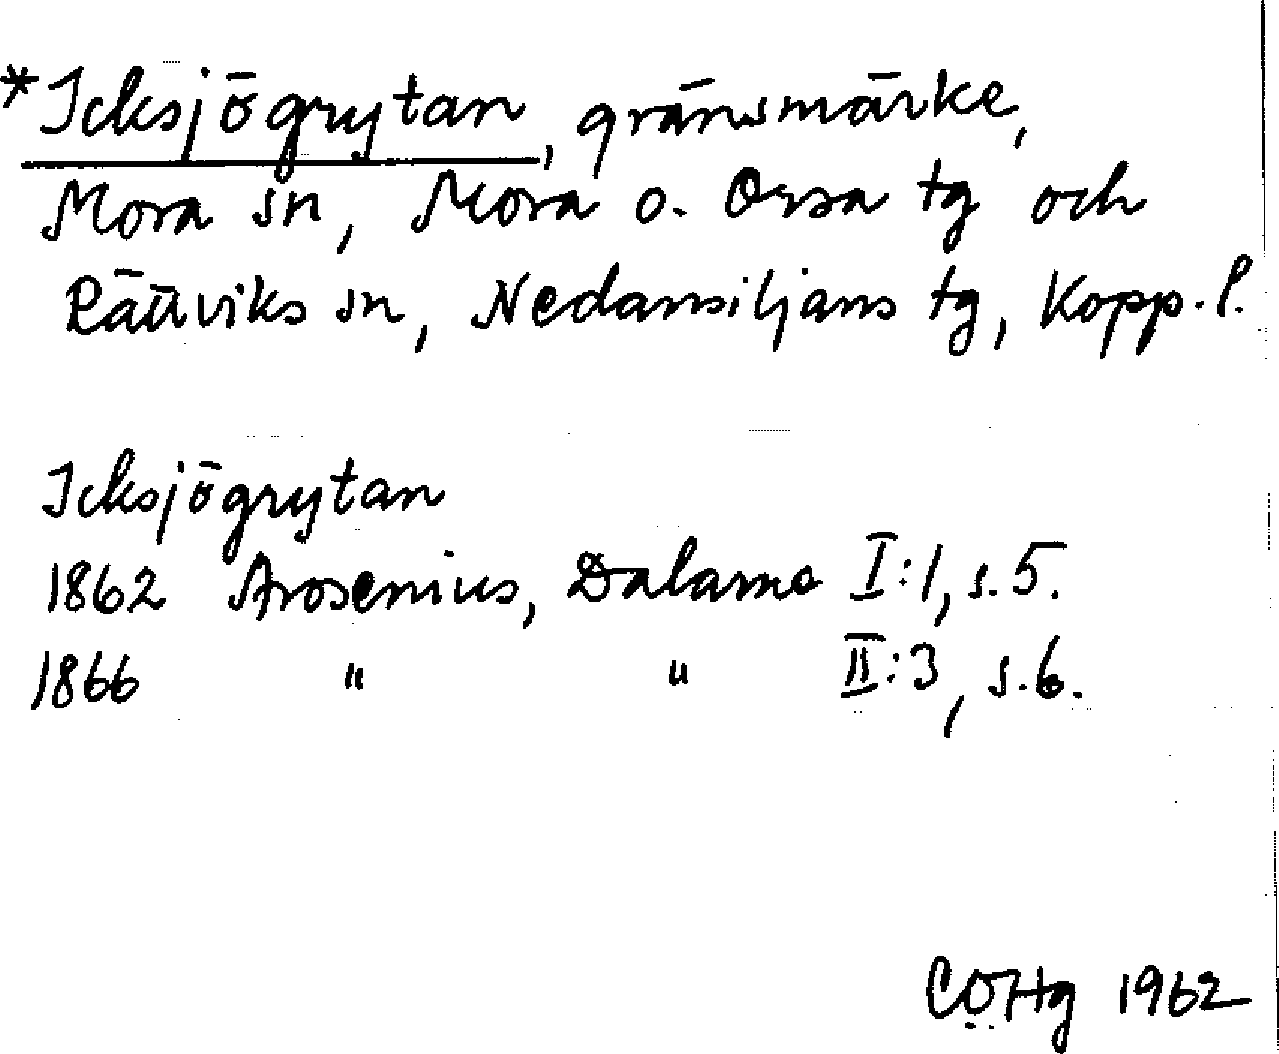 *Icksjögrytan, gränsmärke,
Mora sn, Mora o. Orsa tg och
Rättviks sn, Nedansiljans tg, Kopp. l.
Icksjögrytan
1862 Arosenius, Dalarne I:1, s. 5.
1866 " " II:3, s. 6.
CÖHg 1962